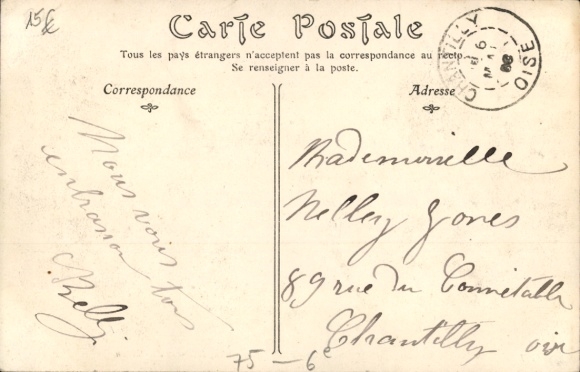 15€
Carte Postale
Tous les pays étrangers n'acceptent pas la correspondance au recto.
Se renseigner à la poste.
Correspondance
Adresse
CHANTILLY
6
MAI
08
OISE
Nous vous
embrassons tous
Mademoiselle
Nelley Jones
89 rue du Connétable
Chantilly oise
75-6e